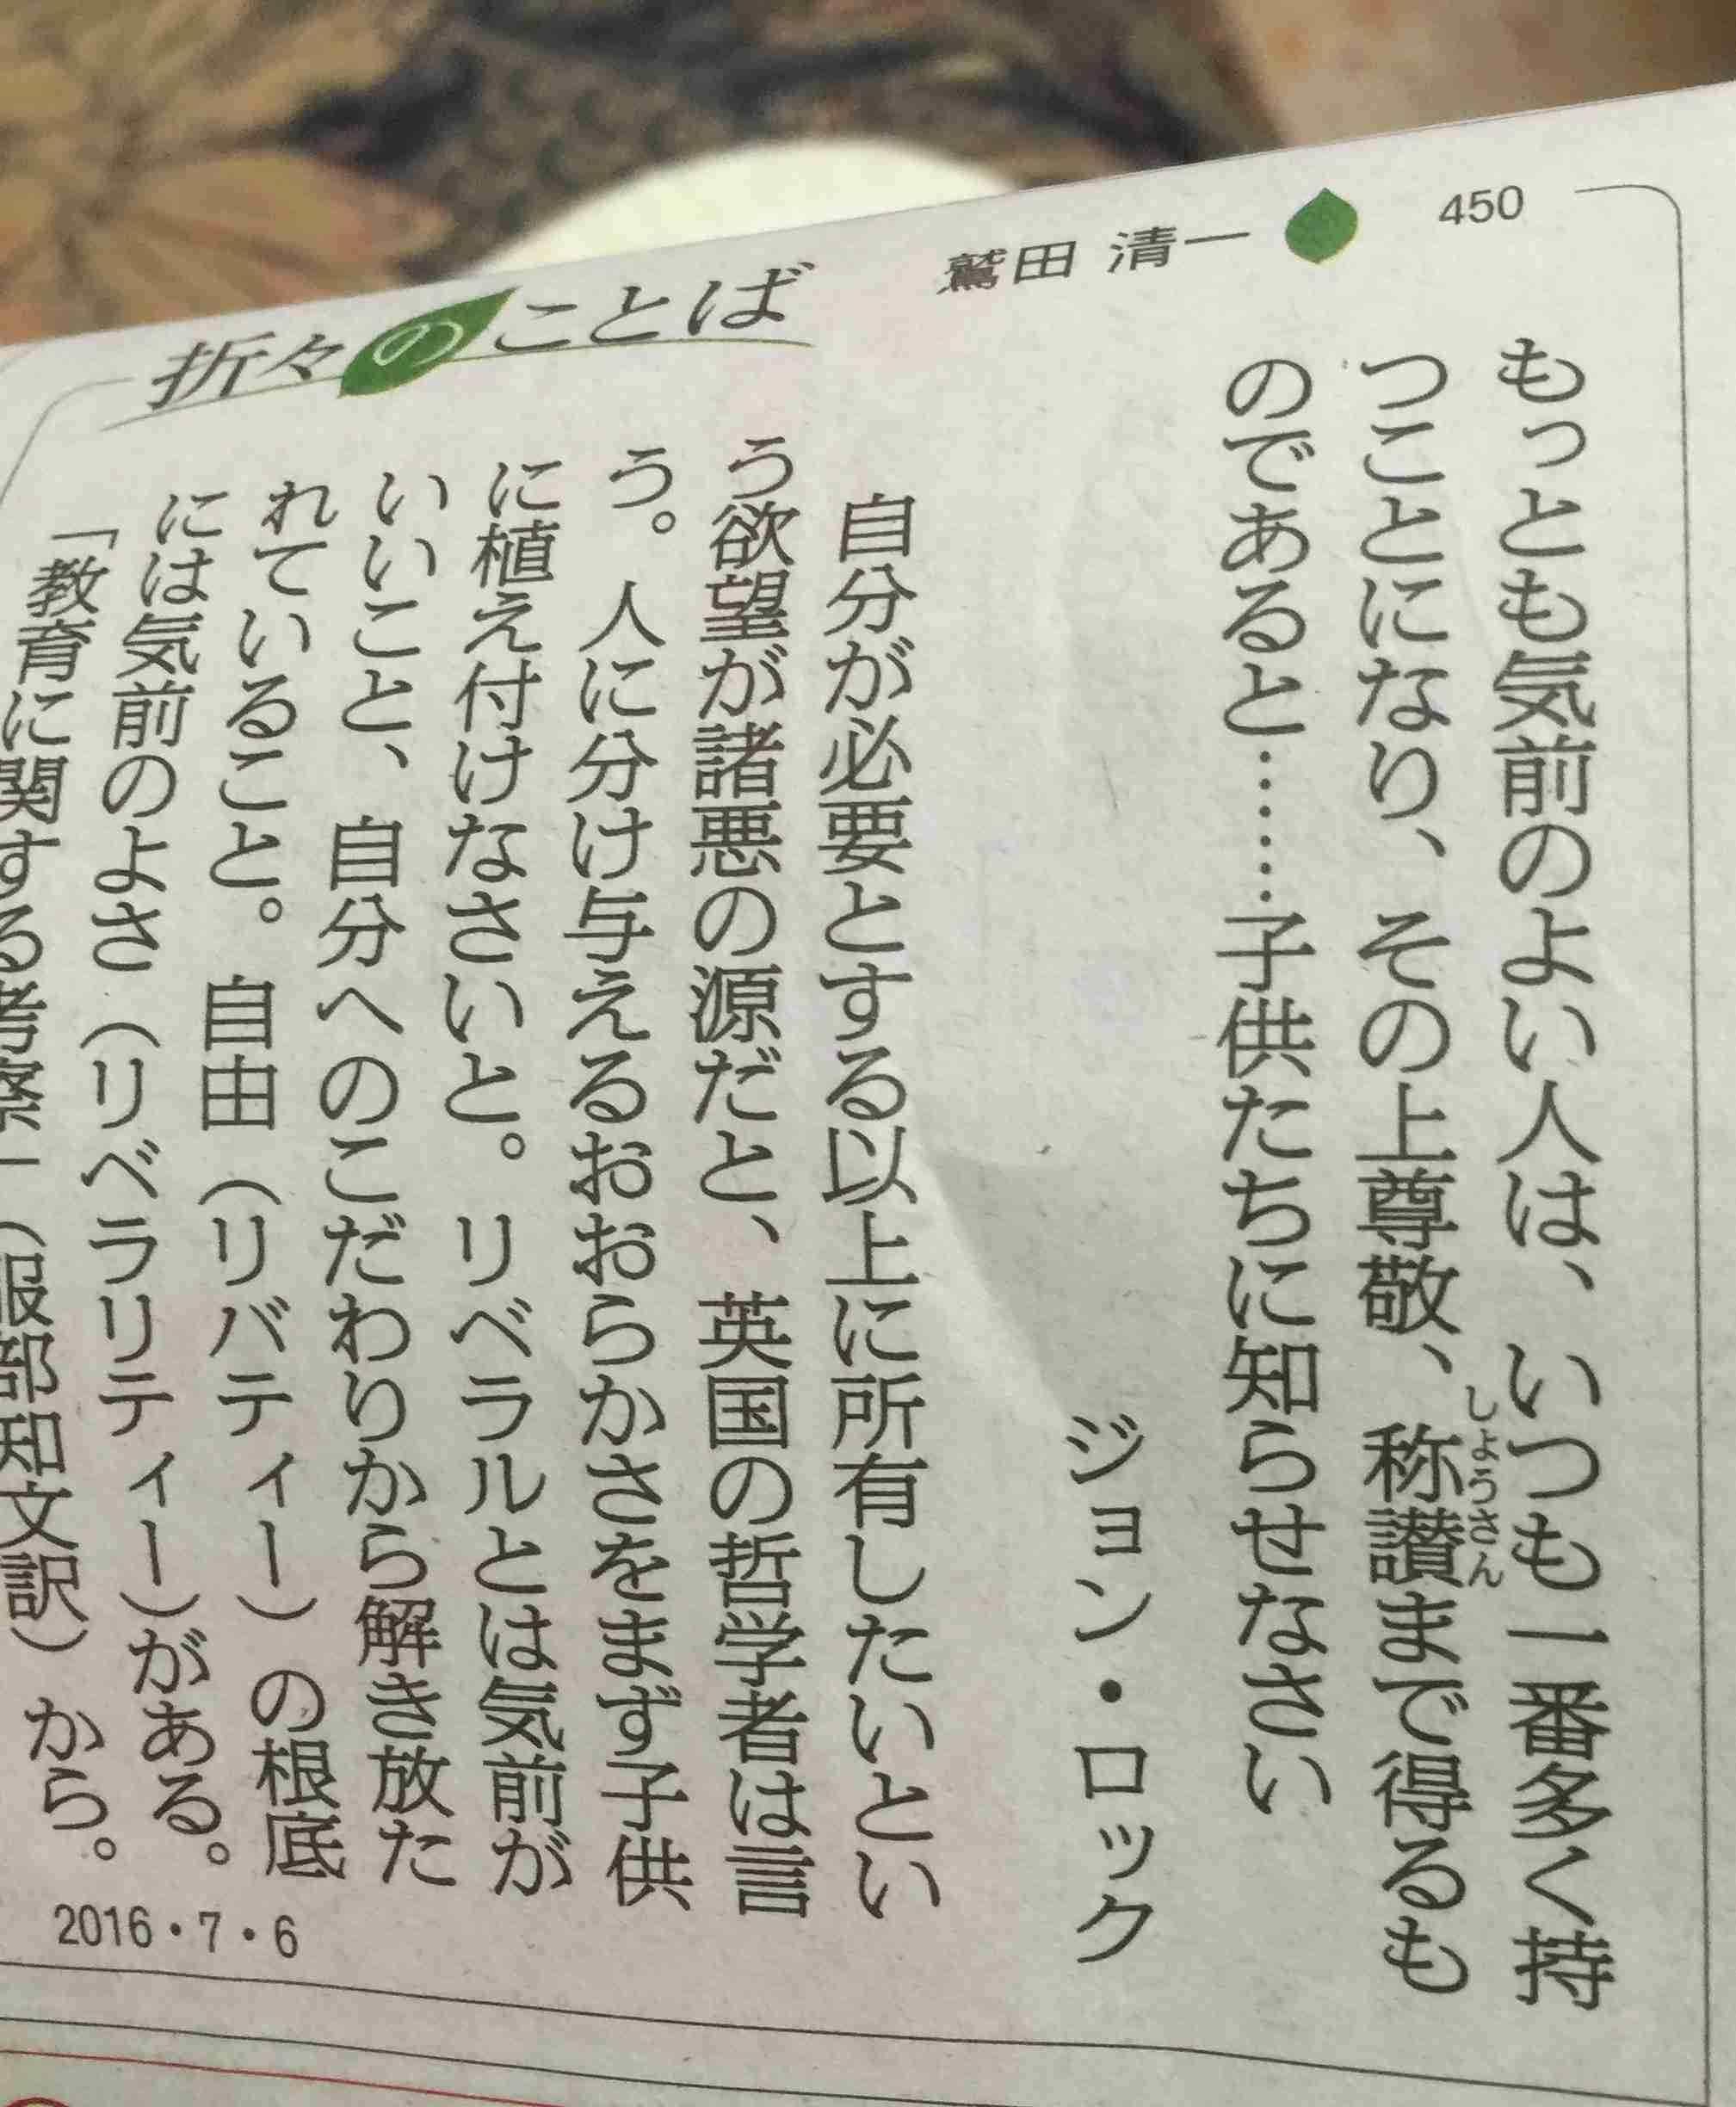 折々のことば
鷲田 清一
450
もっとも気前のよい人は、いつも一番多く持
つことになり、その上尊敬、称讃まで得るも
しょうさん
のであると……子供たちに知らせなさい
ジョン・ロック
自分が必要とする以上に所有したいとい
う欲望が諸悪の源だと、英国の哲学者は言
う。人に分け与えるおおらかさをまず子供
に植え付けなさいと。リベラルとは気前が
いいこと、自分へのこだわりから解き放た
れていること。自由（リバティー）の根底
には気前のよさ（リベラリティー）がある。
「教育に関する考察」（服部知文訳）から。
2016・7・6